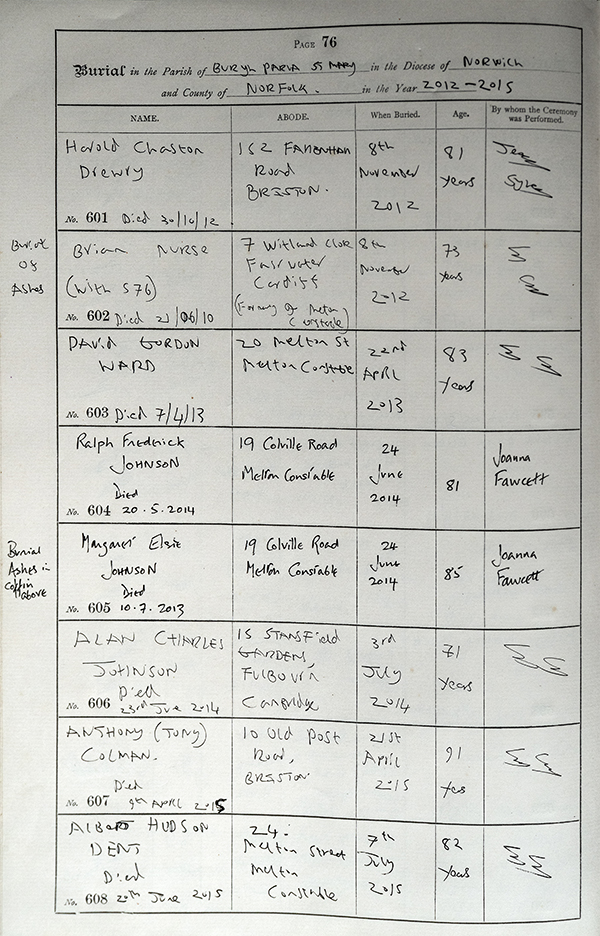 PAGE 76
Burial in the Parish of BURGH PARVA ST MARY in the Diocese of NORWICH
and County of NORFOLK. in the Year 2012-2015
NAME. ABODE. When Buried. Age. By whom the Ceremony was Performed.
Harold Chaston
Drewry
No. 601 Died 30/10/12
152 FAKENHAM
Road
BRISTON.
8th
November
2012
81
years
Burial
of
Ashes
Brian NURSE
(With 576)
No. 602 Died 21/06/10
7 Close
Fairwater
Cardiff
(Formerly of Melton
Constable)
8th
November
2012
73
years
DAVID GORDON
WARD
No. 603 Died 7/4/13
20 Melton St
Melton Constable
22nd
APRIL
2013
83
years
Ralph Frederick
JOHNSON
Died
No. 604 20.5.2014
19 Colville Road
Melton Constable
24
June
2014
81
Joanna
Fawcett
Burial
Ashes in
coffin
above
Margaret Elsie
JOHNSON
Died
No. 605 10.7.2013
19 Colville Road
Melton Constable
24
June
2014
85
Joanna
Fawcett
ALAN CHARLES
JOHNSON
Died
No. 606 23rd June 2014
15 STANSFIELD
GARDENS,
FULBOURN
Cambridge
3rd
July
2014
71
years
ANTHONY (TONY)
COLMAN.
Died
No. 607 9th APRIL 2015
10 Old Post
Road,
BRISTON.
21st
April
2015
91
yrs
ALBERT HUDSON
DENT
Died
No. 608 20th June 2015
24.
Melton Street
Melton
Constable
7th
July
2015
82
years